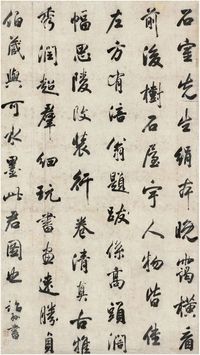 石室先生絹本晚靄橫看
前後樹石屋宇人物皆佳
左方有涪翁題跋係高頭闊
幅思陵改裝行卷清真古雅
秀潤超羣細玩書画遠勝貞
伯藏與可水墨此君圖也 書